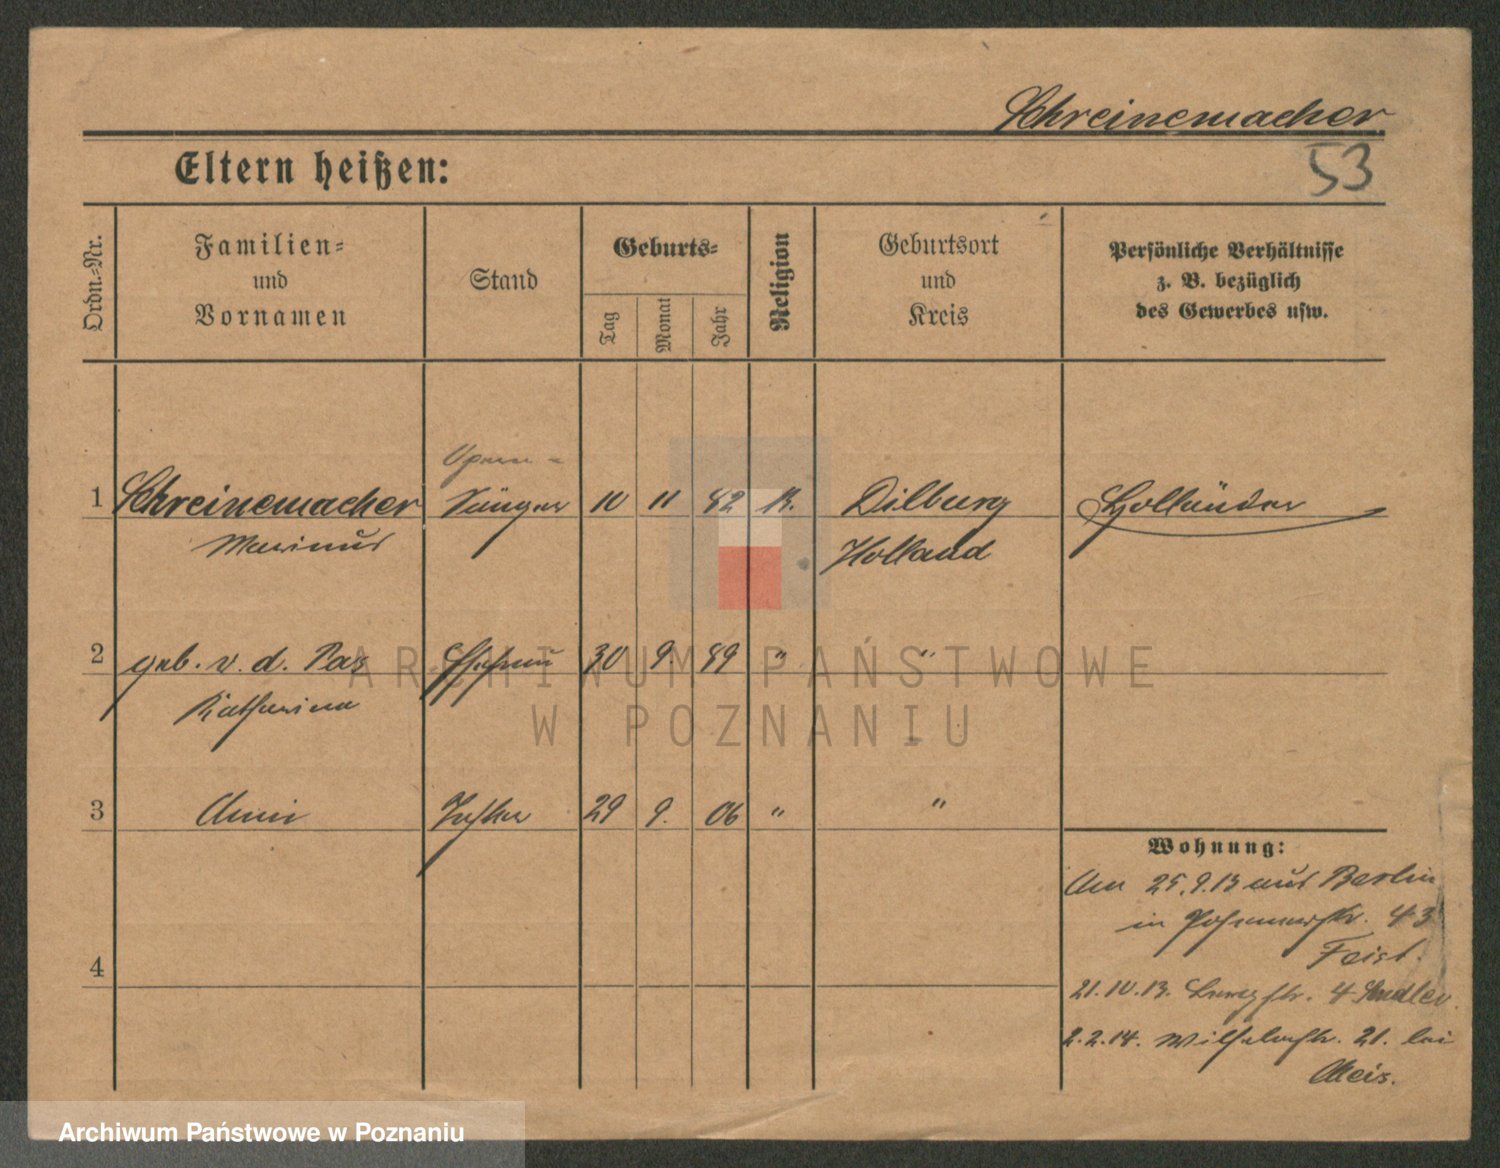 Schreinemacher
Eltern heißen:
53
Ordn.-Nr.
Familien-
und
Vornamen
Stand
Geburts-
Tag
Monat
Jahr
Religion
Geburtsort
und
Kreis
Persönliche Verhältnisse
z. B. bezüglich
des Gewerbes usw.
Opern-
1 Schreinemacher Sänger 10 11 82 K. Dilburg Holländer
Marinus Holland
2 geb. v. d. Paz Ehefrau 30 9. 89 " "
Katharina
3 Anni Tochter 29 9. 06 " "
4
Wohnung:
Am 25.9.13 aus Berlin
in Posenerstr. 43
Feist.
21.10.13. str. 4
2.2.14. Wilhelmstr. 21. bei
Meis.
ARCHIWUM PAŃSTWOWE
W POZNANIU
Archiwum Państwowe w Poznaniu